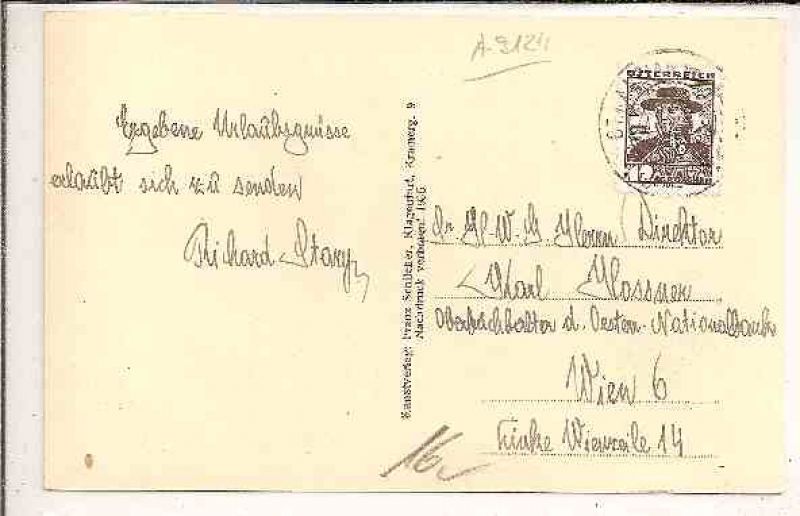 A-9124
ÖSTERREICH
12
Ergebene Urlaubsgrüsse
erlaubt sich zu senden
Richard Stary
Kunstverlag: Franz Schilcher, Klagenfurt, Kramerg. 9
Nachdruck verboten! 1906
Sr. H. W. G. Herrn Direktor
Karl
Oberbuchhalter d. Oesterr. Nationalbank
Wien 6
Linke Wienzeile 14
16